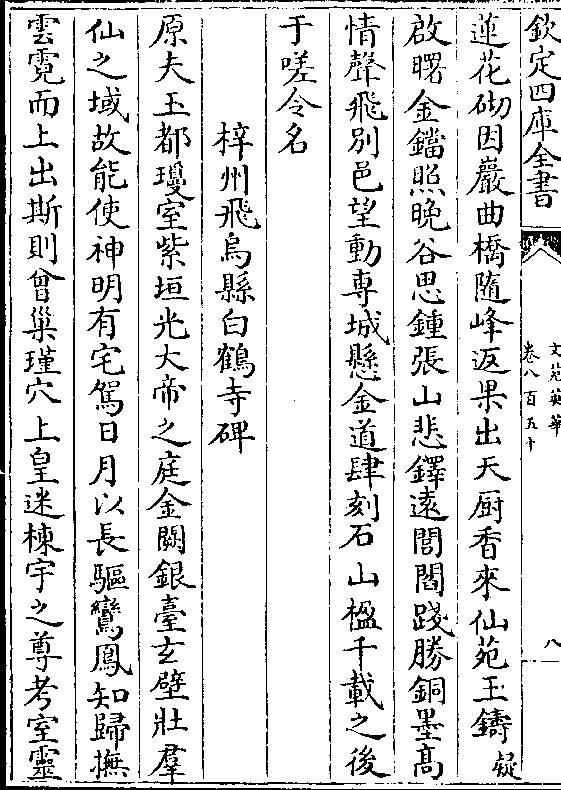 欽定四庫全書
文苑英華
卷八百五十
八
蓮花砌因巖曲橋隨峰返果出天厨香來仙苑玉鑄疑
啟曙金鐺照晚谷思鍾張山悲鐸遠閭閻踐勝銅墨髙
情聲飛別邑望動専城懸金道肆刻石山楹千載之後
于嗟令名
梓州飛烏縣白鶴寺碑
原夫玉都瓊室紫垣光大帝之庭金闕銀臺玄壁壯羣
仙之域故能使神明有宅駕日月以長驅鸞鳳知歸撫
雲霓而上出斯則曾巢瑾穴上皇迷棟宇之尊考室靈